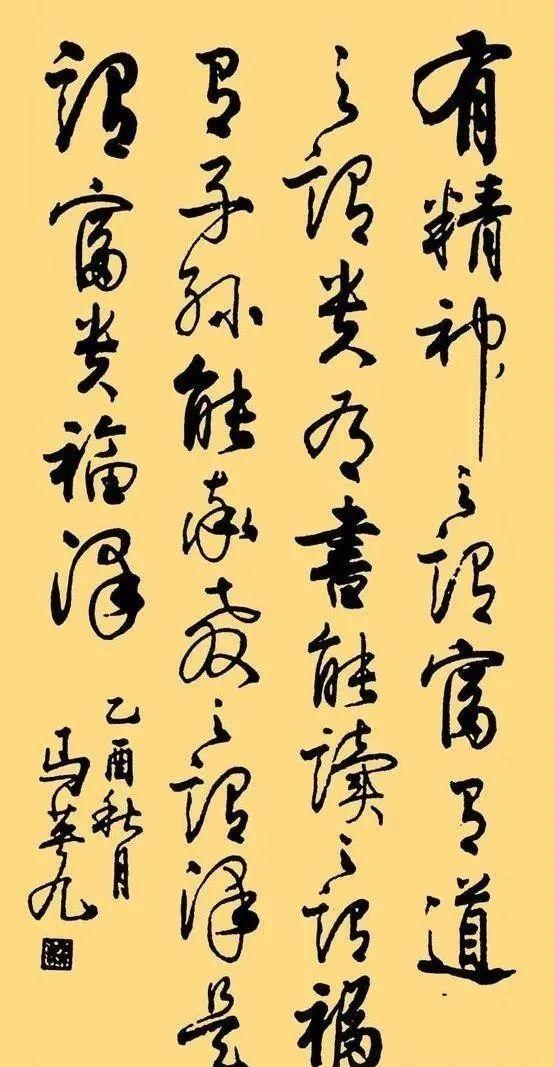 有精神之謂富有道
之謂貴有書能讀之謂福
有子孫能承教之謂澤是
謂富貴福澤
乙酉秋月
馬英九